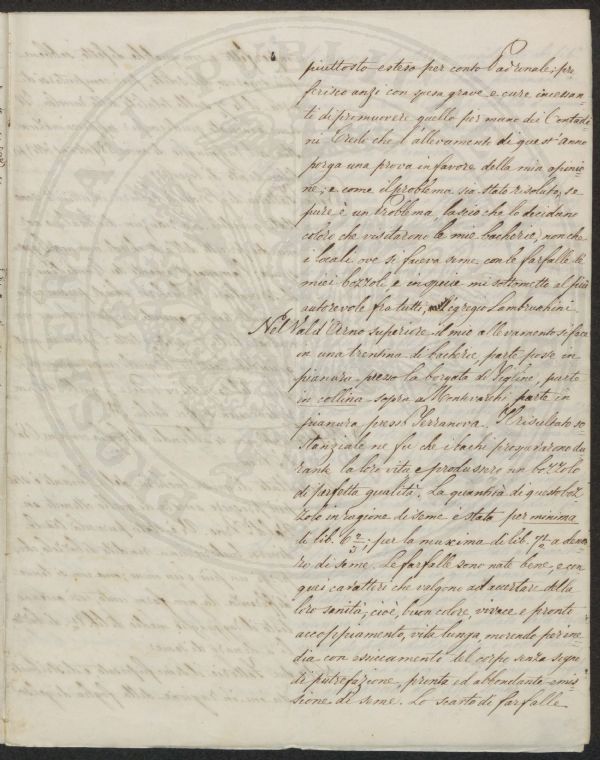 piuttosto esteso per conto Padronale; pre
ferisco anzi con spesa grave e cure incessan
ti di promuovere quello per mano dei Contadi
ni. Credo che l'allevamento di quest'anno
porga una prova in favore della mia opinio
ne; e come il problema sia stato risoluto, se
pure è un Problema, lascio che lo decidano
coloro che visitarono le mie bacherie, non che
i locali ove si faceva seme con le farfalle de
miei bozzoli, e in specie mi sottometto al più
autorevole fra tutti, all'egregio Lambruschini.
Nel Val d'Arno superiore il mio allevamento si fece
in una trentina di bacherie, parte poste in
pianura presso la borgata di Figline, parte
in collina sopra a Montevarchi parte in
pianura presso Terranova. Il risultato so
stanziale ne fu che i bachi prosperarono du
rante la loro vita, e produssero un bozzolo
di perfetta qualità. La quantità di questo boz
zolo in ragione di seme è stata per minima
di lib. 6 2/3; per la massima di lib. a dena
ro di seme. Le farfalle sono nate bene, e con
quei caratteri che valgono ad accertare della
loro sanità, cioè, buon colore, vivace e pronto
accoppiamento, vita lunga morendo per ine
dia con essiccamento del corpo senza segno
di putrefazione, pronta ed abbondante emis
sione di seme. Lo scarto di farfalle